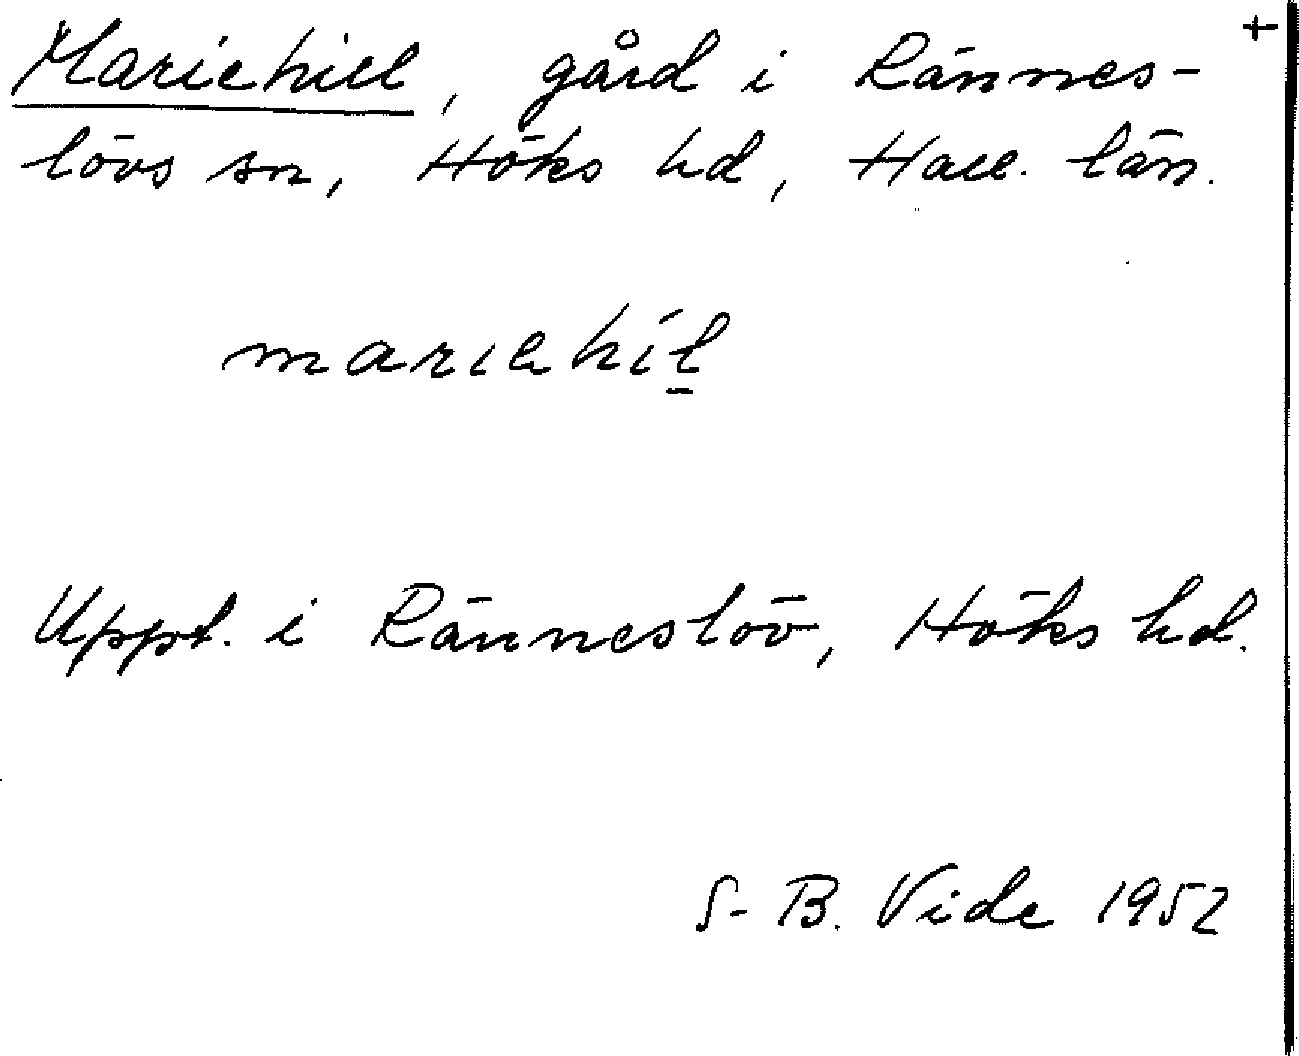 +
Mariehill, gård i Rännes-
lövs sn, Höks hd, Hall. län.
mariehíl̲
Uppt. i Ränneslöv, Höks hd.
S-B. Vide 1952